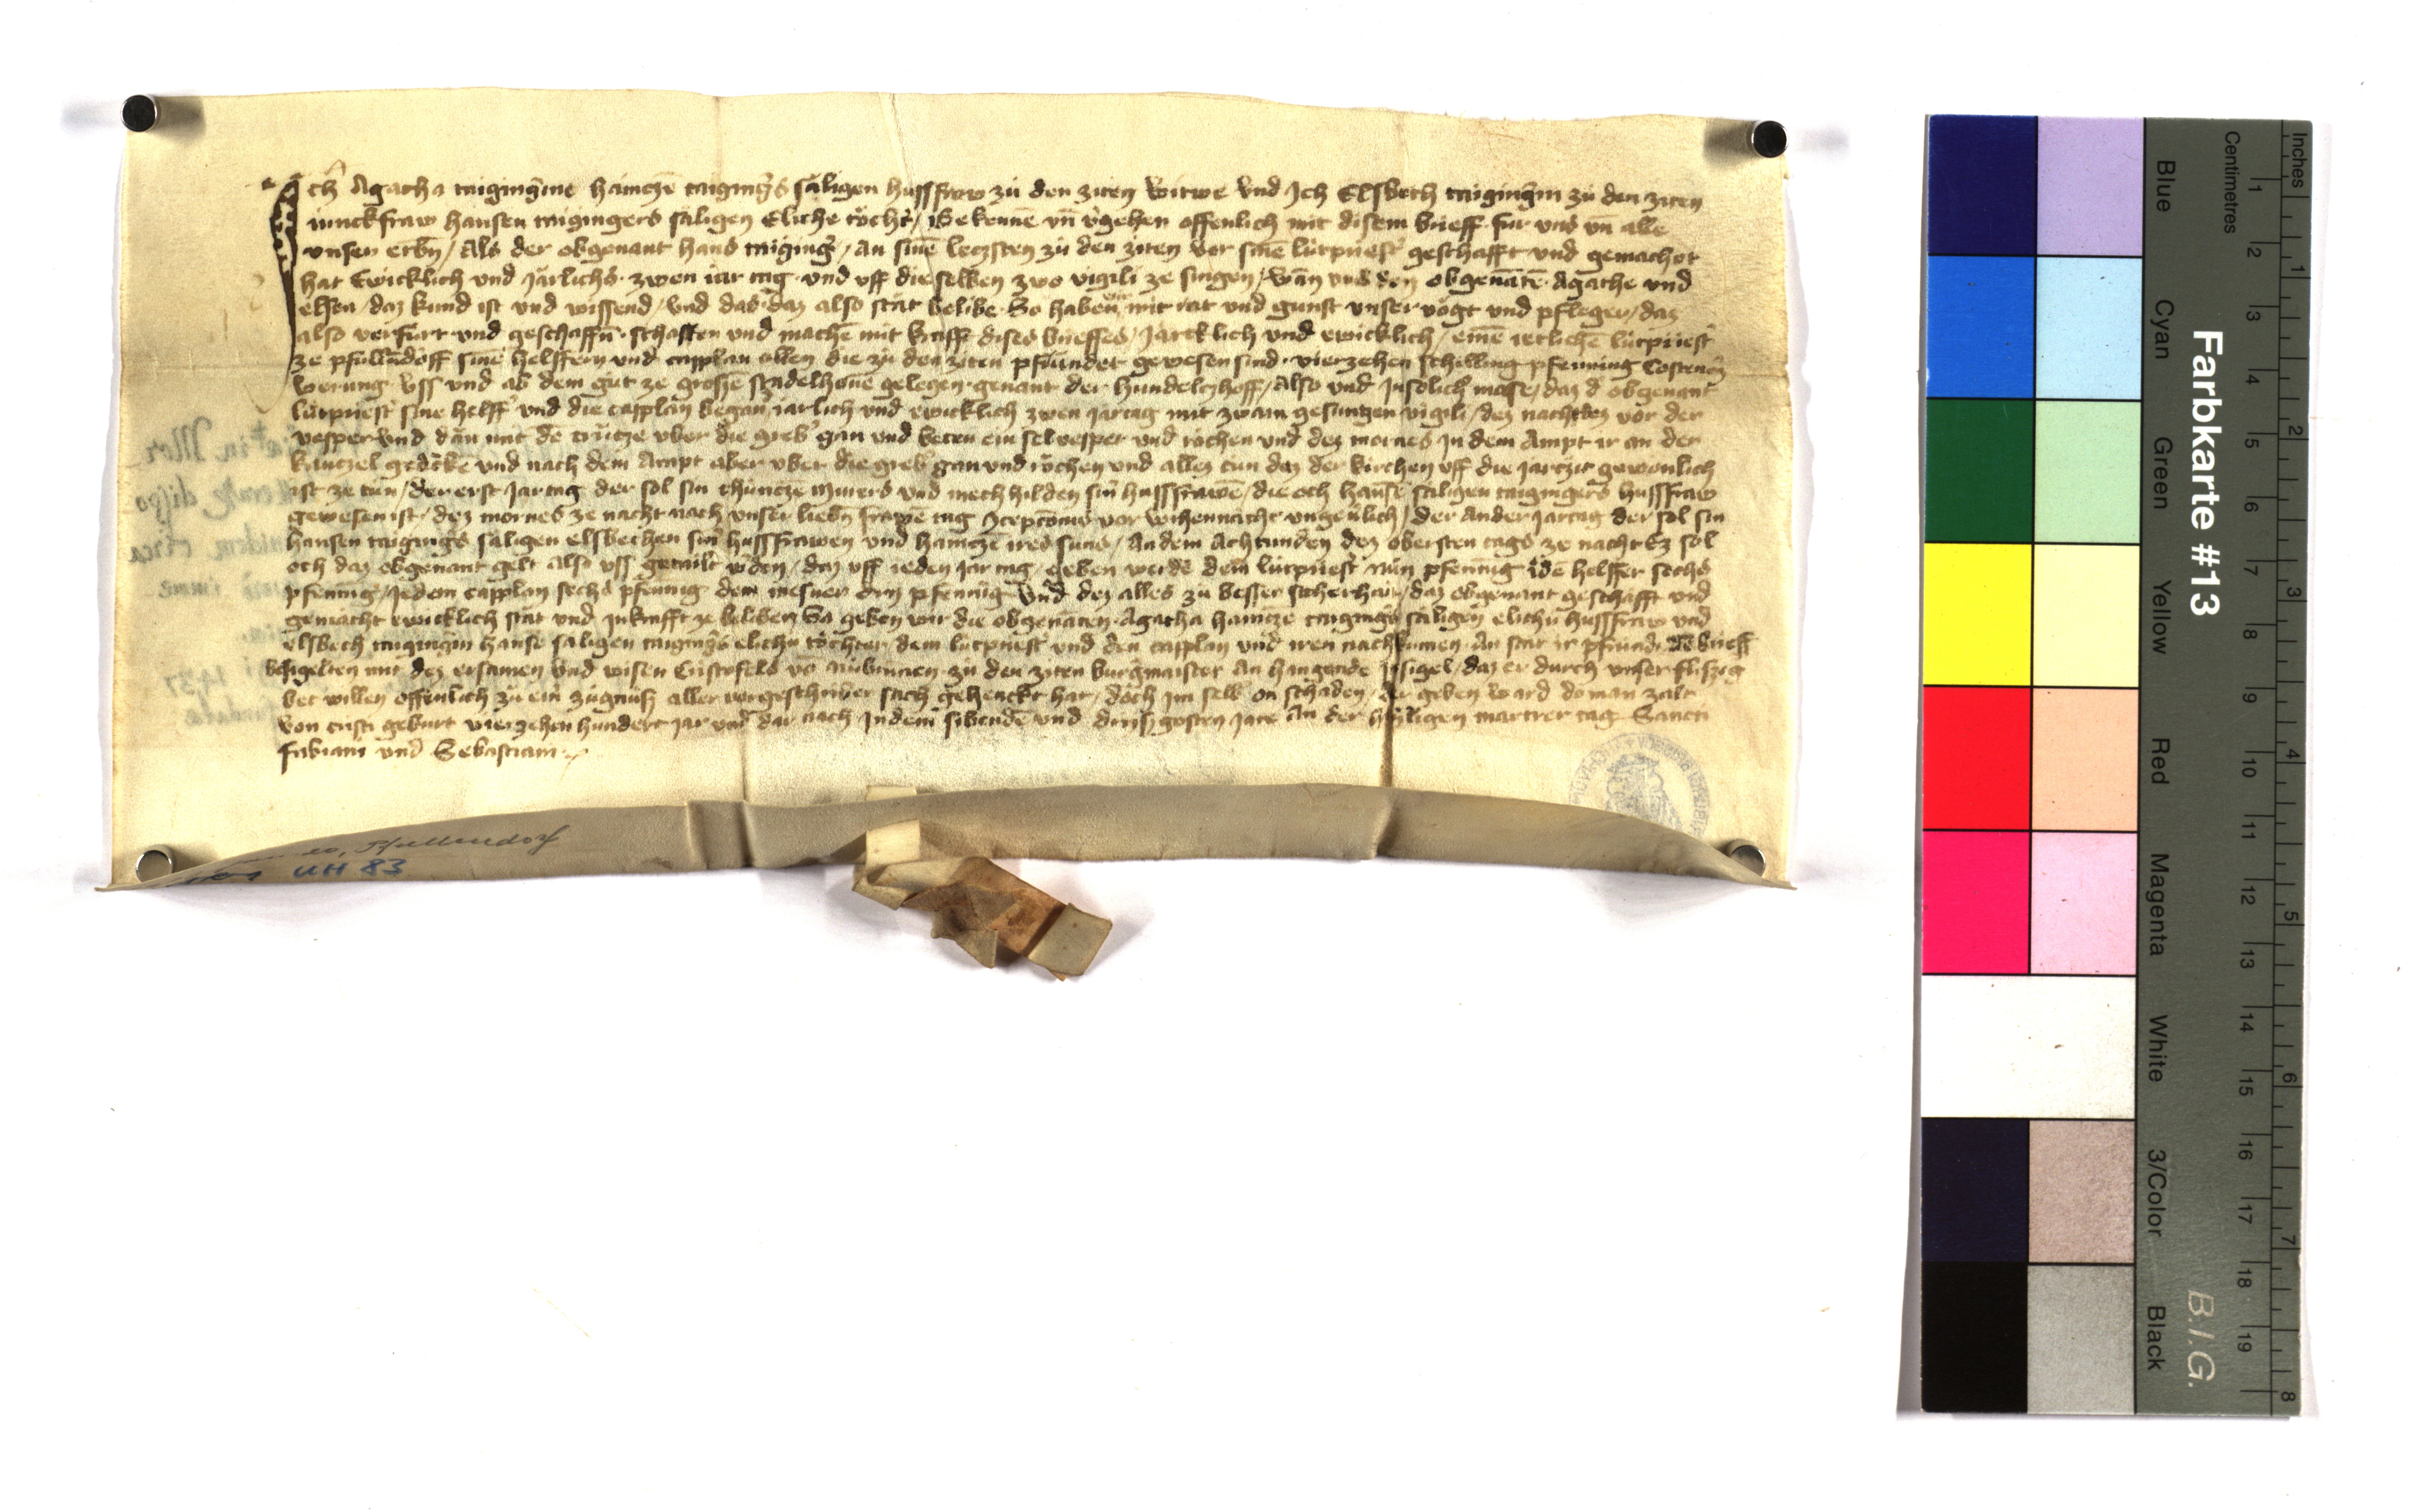 Ich Agatha taigingerine haintzen taigingers säligen hussfraw zu den ziten witwe Vnd Ich Elsbeth taigingerin zu den ziten
iunckfraw hansen taigingers säligen Eliche tochter / Bekennē vn̄ v̓gehen offenlich mit disem brieff für vns vn̄ alle
vnsen erbn / Als der obgenant hans taiging̓ / an sinē leczsten zu den ziten vor sinē lütpriest̓ geschafft vnd gemachot
hat Ewicklich vnd Järlichs zwen iar tag vnd vff die selben zwo vigili ze singen / wan vns den obgenātē Agathe vnd
elsen / daz kund ist vnd wissend / vnd das daz also stät belibe So haben wir mit rat vnd gunst vnser vögt vnd pfleger / daz
also verfürt vnd geschaffn̄ schaffen vnd machē mit krafft dises brieffes / Järcklich vnd ewicklich / einē ietlichē lütpriest̓
ze pfullēdorff sinē helffern vnd capplan allen die zu den ziten pfründet gewesen sind vierzehen schilling pfenning Costencz̓
werung vss vnd ab dem gut ze grossē stadelhouē gelegen genant der hundel hoff / Also vnd Jn solich̓ mase / daz d̓ obgenant
lütpriest̓ sine helff̓ vnd die capplan began iarlich vnd ewicklich zwen jartag mit zwain gesungen vigili / dez nachtez vor der
vesper vnd dan mit dē crütze vber die greb̓ gan vnd beten ein selvesper vnd röchen vnd dez mornes Jn dem Ampt ir an der
kantzel gedēkē vnd nach dem Ampt aber vber die greb̓ gan vnd röchen vnd allez tun daz der kirchen vff die jartzit gewonlich
ist ze tun / der erst Jartag der sol sin chüntzē murers vnd mechhilden sin̓ hussfrawē / die och hansē säligen taigingers hussfraw
gewesen ist / dez mornes ze nacht nach vnser liebn̄ frawē tag Ɔceptōnis vor wihennacht vngeu̓lich / der Ander jartag der sol sin
hansen taiging̓s säligen elsbethen sin̓ hussfrawen vnd haintzē ires suns / An dem Achtunden dez obersten tags ze nacht Ez sol
och daz obgenant gelt also vss getailt w̓den / daz vff ieden jar tag geben werdē dem lütpriest̓ nün pfenning idē helffer sechs
pfenning / Jedem capplan sechs pfennig dem mesner dry pfennig Vnd dez alles zu besser sicherhait / daz obgenant geschäfft vnd
gemächt ewicklich stät vnd Jn krafft ze beliben So geben wir die obgenāten Agatha haintzē taiging̓s säligen elichu hussfraw vnd
elsbeth taigingin hansē saligen taiging̓s elichu tochter dem lütpriest̓ vnd den capplan vnd iren nachkumen An stat ir pfrund dē brieff
besigelten mit dez ersamen vnd wisen Cristofels vō nübrunen zu den ziten burgmaister An hangende Jnsigel / daz er durch vnser flissig
bet willen offenlich zu ein zügnuss aller vorgeschriber sach gehenckt hat / doch im selb on schaden / der geben ward do man zalt
von cristi geburt vierzehen hundert jar vnd dar nach Jn dem sibendē vnd drissgosten Jare An der hayligen martrer tag Sancti
fabiani vnd Sebastiani
Pfullendorf
UH 83
Farbkarte #13
B.I.G.
Inches
Centimetres
Blue
Cyan
Green
Yellow
Red
Magenta
White
3/Color
Black
1 2 3 4 5 6 7 8 9 10 11 12 13 14 15 16 17 18 19
1 2 3 4 5 6 7 8